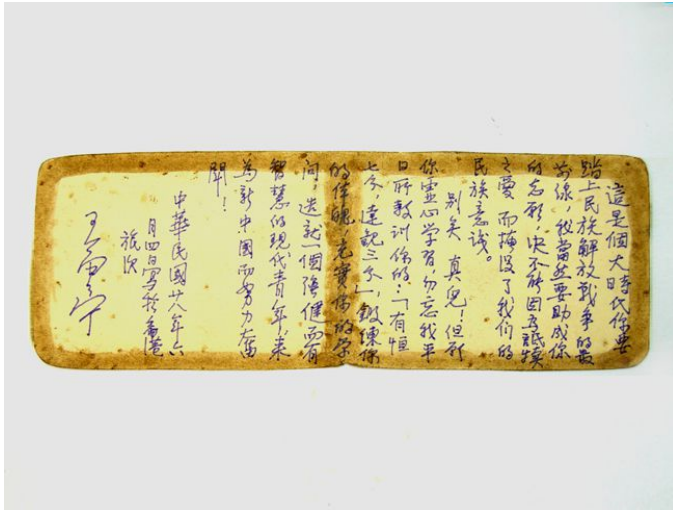 這是個大時代你要
踏上民族解放戰爭的最
前線，我當然要助成你
的志願，決不能因為舐犢
之愛 而掩沒了我们的
民族意識。
別矣 真兒！但願
你虛心学習，勿忘我平
日所教訓你的：「有恒
七分，達觀三分」，鍛煉你
的体魄，充實你的学
问，造就一個强健而有
智慧的現代青年，来
為新中國而努力奮
鬪！
中華民國廿八年六
月四日寫於香港
旅次